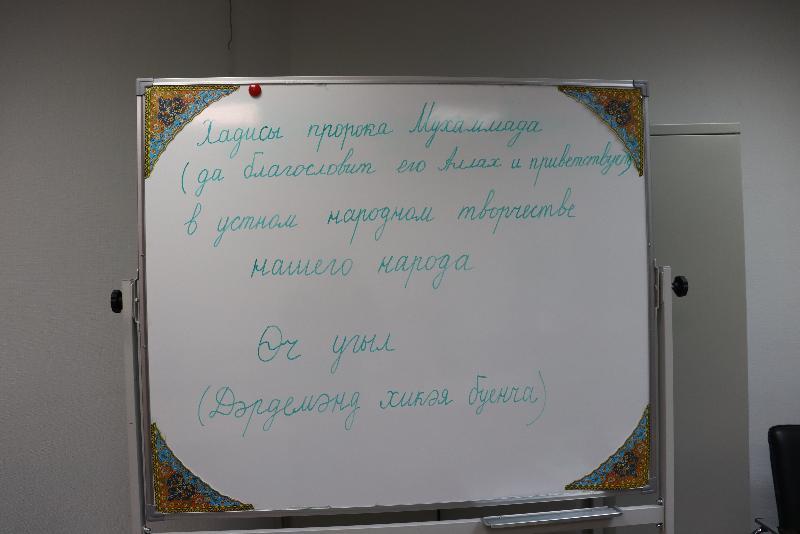 Хадисы пророка Мухаммада
(да благословит его Аллах и приветствует)
в устном народном творчестве
нашего народа
Өч угыл
(Дәрдемәнд хикәя буенча)